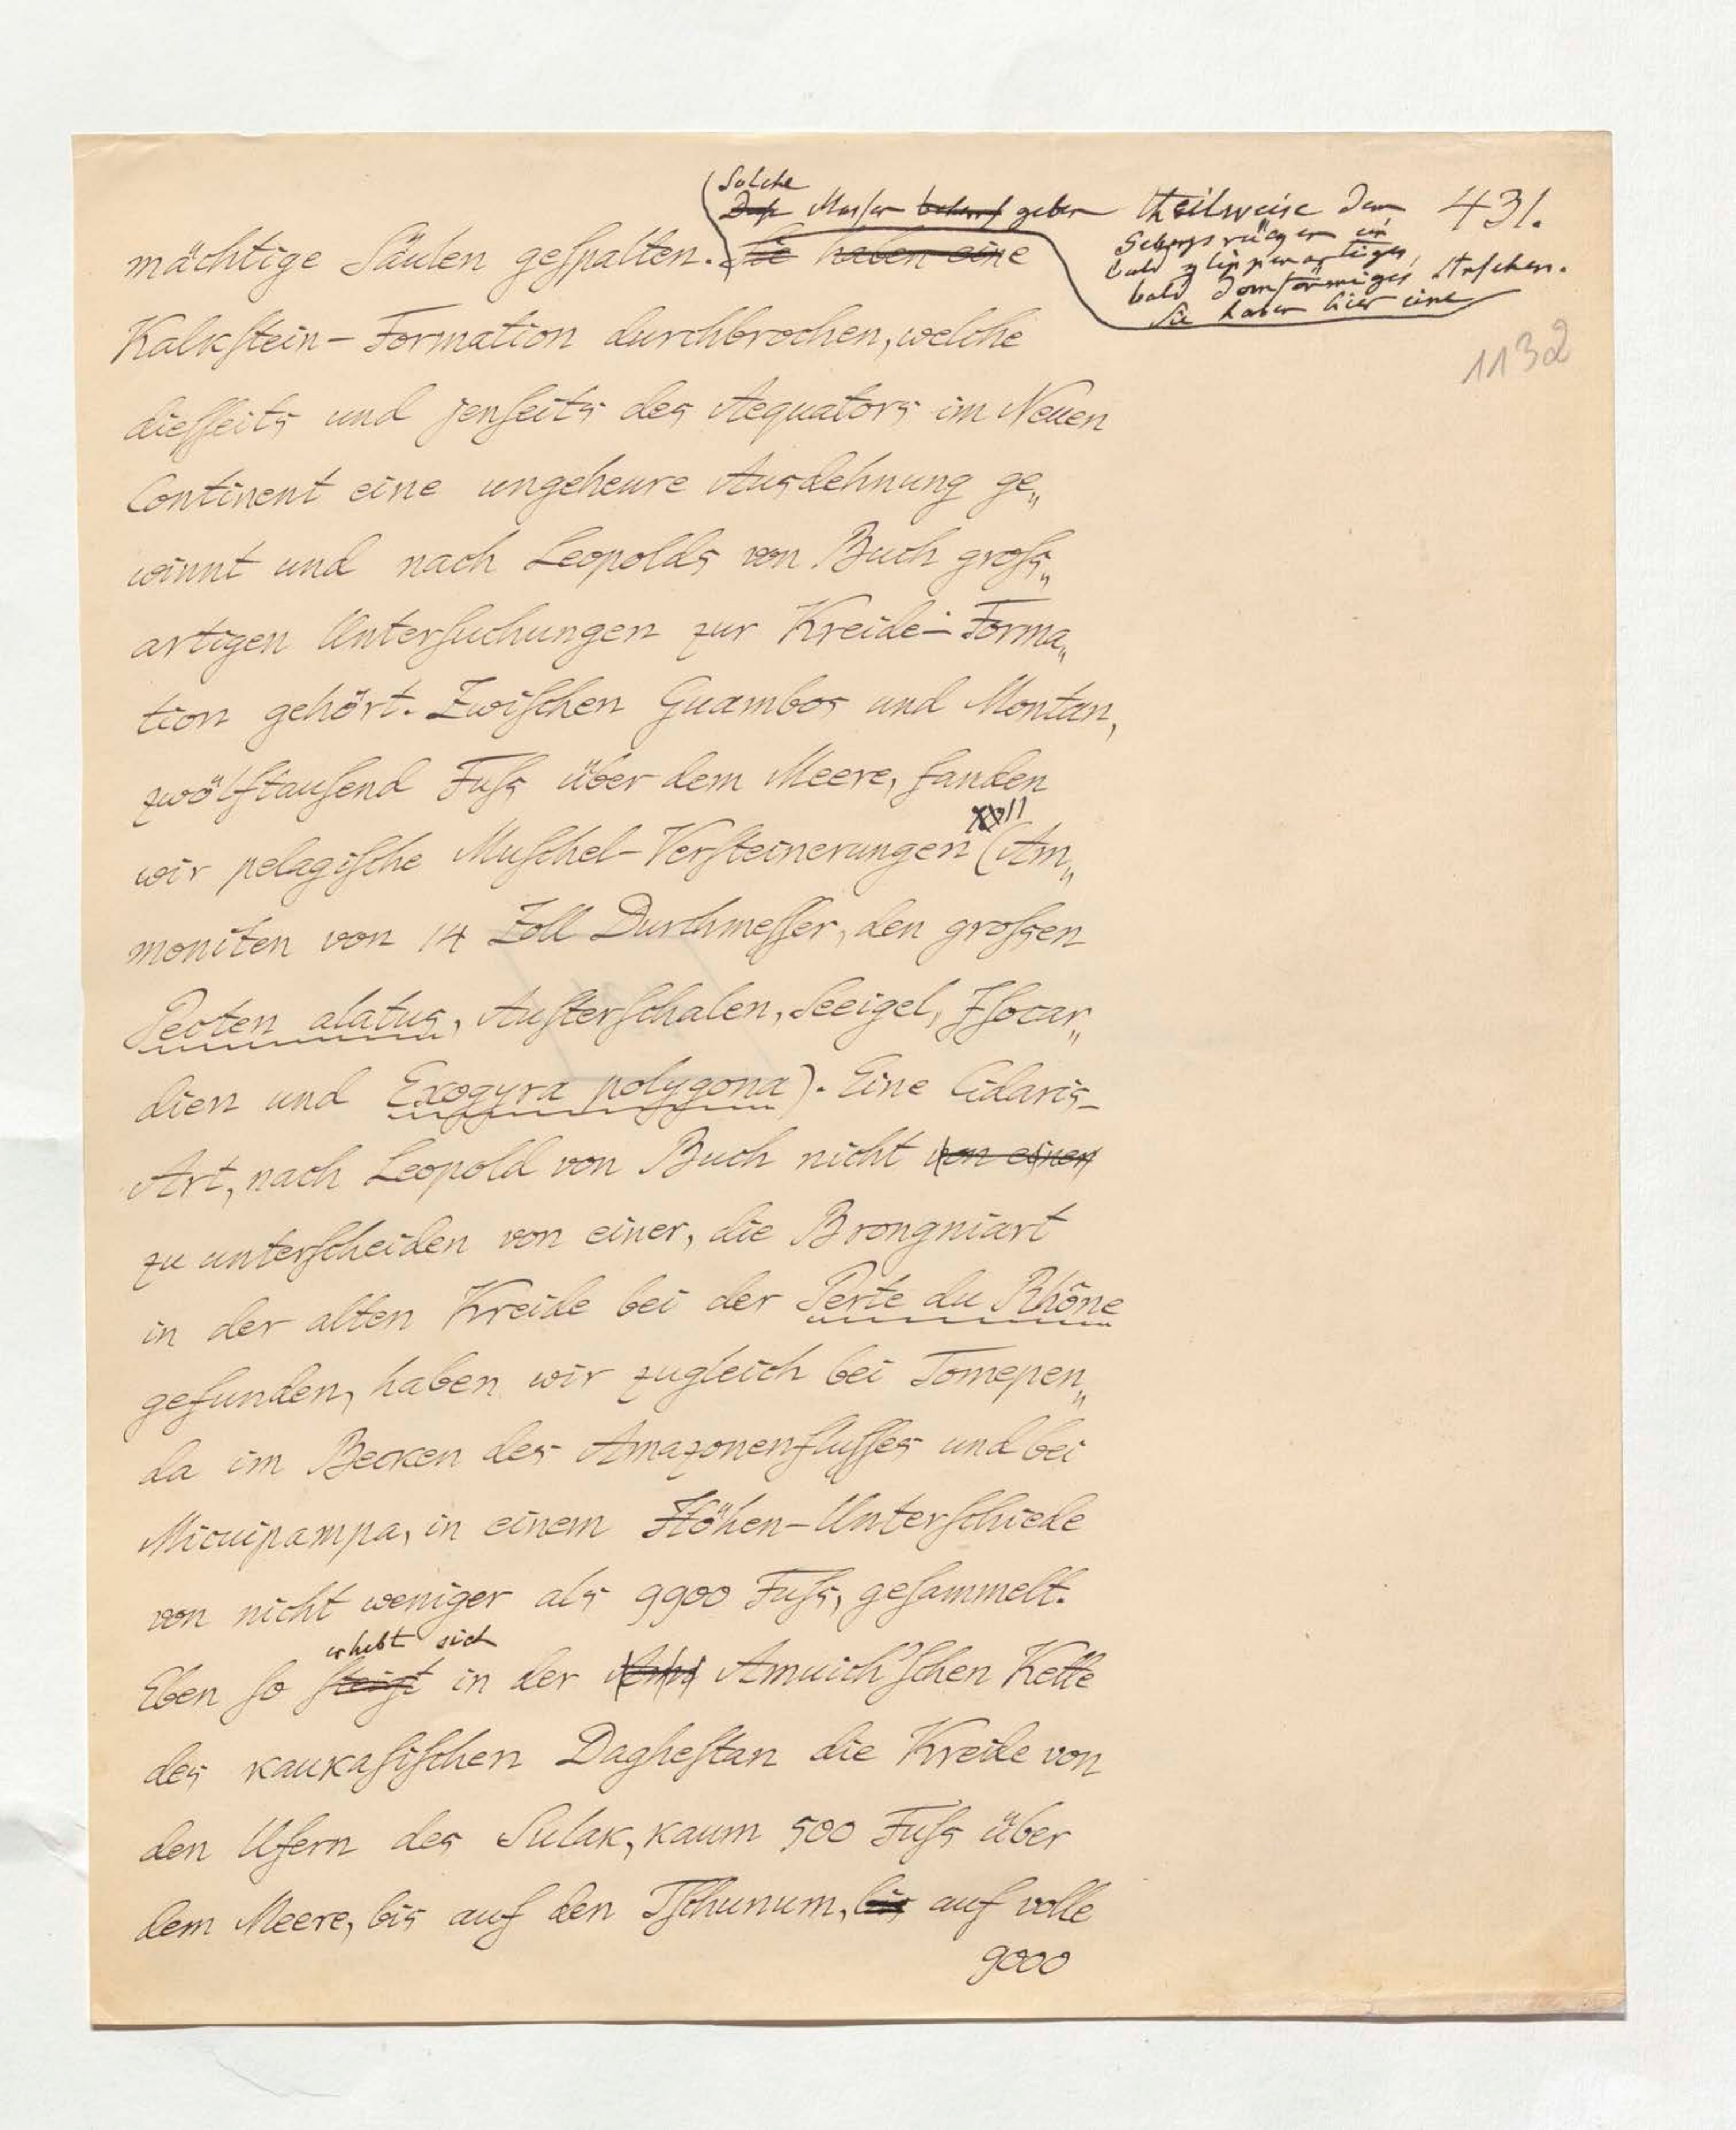 431.
1132
Solche
Massen geben theilweise dem
Gebirgsrücken ein
bald klippenartiges,
bald domförmiges Ansehen.
Sie haben hier eine
mächtige Säulen geſpalten. Sie haben eine
Kalkſtein-Formation durchbrochen, welche
dieſſeits und jenſeits des Aequators im Neuen
Continent eine ungeheure Ausdehnung ge„
winnt und nach Leopolds von Buch groſs„
artigen Unterſuchungen zur Kreide-Forma„
tion gehört. Zwiſchen Guambos und Montan,
zwölftauſend Fuſs über dem Meere, fanden
XVII
wir pelagiſche Muſchel-Verſteinerungen (Am„
moniten von 14 Zoll Durchmeſſer, den groſsen
Pecten alatus, Auſterſchalen, Seeigel, Iſocar„
dien und Exogyra polygona). Eine Cidaris-
Art, nach Leopold von Buch nicht von einen
zu unterſcheiden von einer, die Brongniart
in der alten Kreide bei der Perte du Rhône
gefunden, haben wir zugleich bei Tomepen„
da im Becken des Amazonenfluſſes und bei
Micuipampa, in einem Höhen-Unterſchiede
von nicht weniger als 9900 Fuſs, geſammelt.
erhebt sich
Eben ſo ſteigt in der Amuich'ſchen Kette
des kaukaſiſchen Dagheſtan die Kreide von
den Ufern des Sulak, kaum 500 Fuſs über
dem Meere, bis auf den Tſchunum, bis auf volle
9000